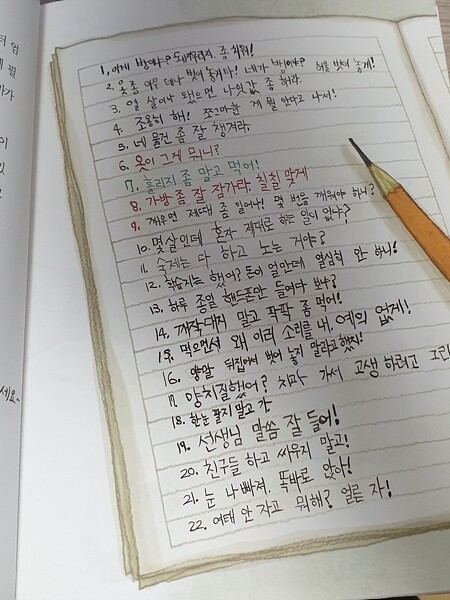 1. 이게 방이야? 돼지우리지. 좀 치워!
2. 옷 좀 아무 데나 벗어 놓지마! 네가 뱀이야? 허물 벗어 놓게!
3. 열 살이나 됐으면 나잇값 좀 해라.
4. 조용히 해! 쪼그마한 게 뭘 안다고 나서!
5. 네 물건 좀 잘 챙겨라.
6. 옷이 그게 뭐니?
7. 흘리지 좀 말고 먹어!
8. 가방 좀 잘 잠가라, 칠칠 맞게
9. 깨우면 제때 좀 일어나! 몇 번을 깨워야 하니?
10. 몇살인데 혼자 제대로 하는 일이 없니?
11. 숙제는 다 하고 노는 거야?
12. 학습지는 했어? 돈이 얼만데 열심히 안 하니!
13. 하루 종일 핸드폰만 들여다 보냐?
14. 깨작대지 말고 팍팍 좀 먹어!
15. 먹으면서 왜 이리 소리를 내, 예의 없게!
16. 양말 뒤집어서 벗어 놓지 말라고 했지!
17. 양치질했어? 치과 가서 고생 하려고 그런
18. 한눈 팔지 말고 가
19. 선생님 말씀 잘 들어!
20. 친구들 하고 싸우지 말고!
21. 눈 나빠져. 똑바로 앉아!
22. 여태 안 자고 뭐해? 얼른 자!